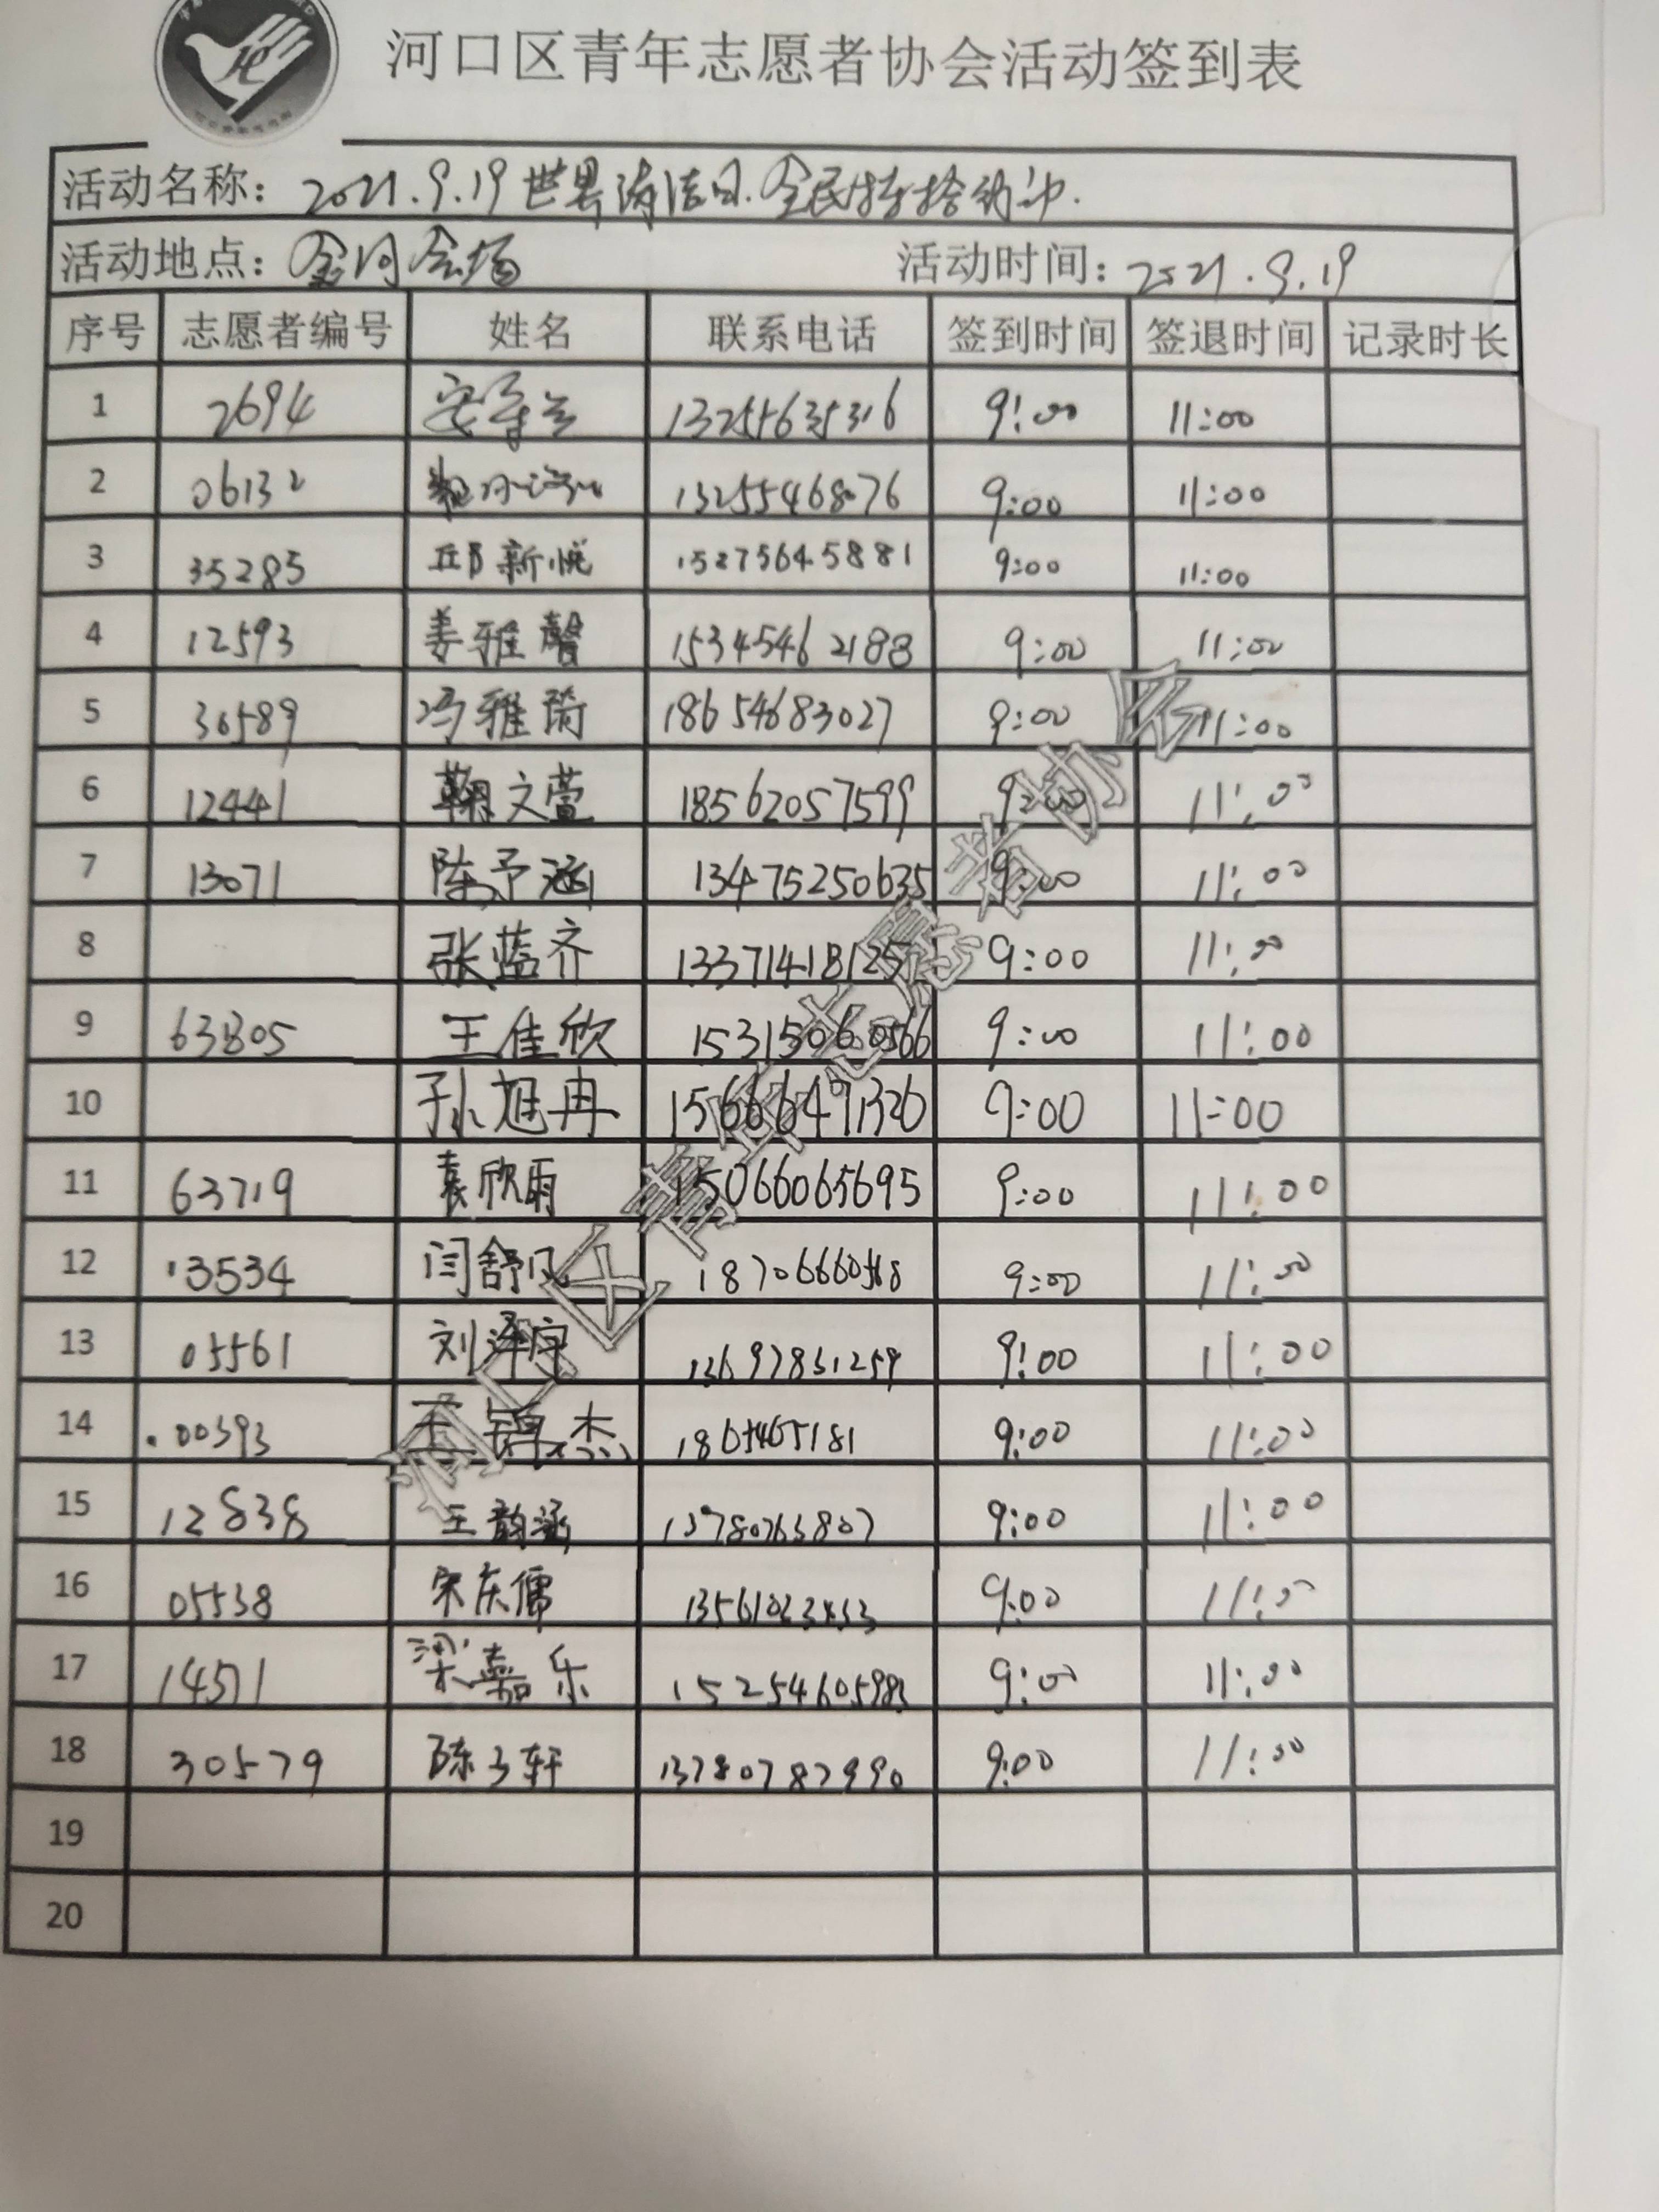 河口区青年志愿者协会活动签到表
活动名称：2021.9.19世界清洁日.全民捡拾行动.
活动地点：金河会场 活动时间：2021.9.19
序号 志愿者编号 姓名 联系电话 签到时间 签退时间 记录时长
1 2694 13255635316 9:00 11:00
2 06132 13255468076 9:00 11:00
3 35285 邱新悦 15275645881 9:00 11:00
4 12593 姜雅馨 15345462188 9:00 11:00
5 30589 冯雅琦 18654683027 9:00 11:00
6 12441 鞠文萱 18562057599 9:00 11:00
7 13071 陈予涵 13475250635 9:00 11:00
8 张蓝齐 13371418125 9:00 11:00
9 63805 王佳欣 15315060566 9:00 11:00
10 孙旭冉 15666491326 9:00 11:00
11 63719 袁欣雨 15066065695 9:00 11:00
12 13534 闫舒凡 18706660568 9:00 11:00
13 05561 刘泽宇 13697831259 9:00 11:00
14 00393 王锦杰 1865465181 9:00 11:00
15 12838 王韵涵 13780763807 9:00 11:00
16 05538 宋东儒 9:00 11:00
17 14571 梁嘉乐 15254605983 9:00 11:00
18 30579 陈子轩 13780787990 9:00 11:00
19
20
河口区青年志愿者协会